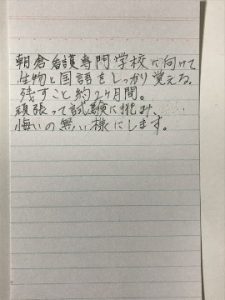 朝倉看護専門学校に向けて
生物と国語をしっかり覚えな
残すこと約2ヶ月間。
頑張って試験に挑み、
悔いの無い様にします。